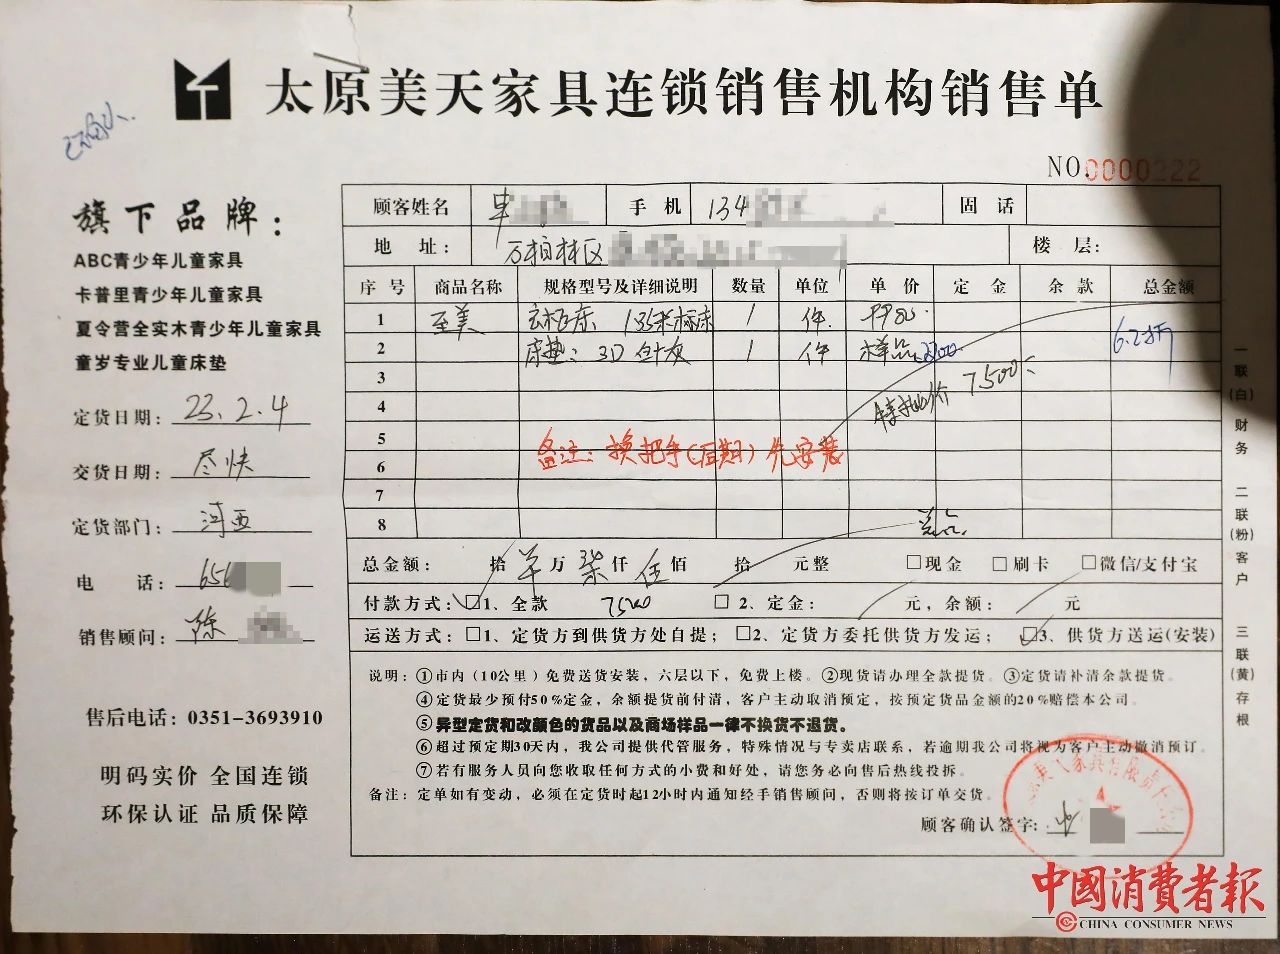 太原美天家具连锁销售机构销售单
NO.0000222
旗下品牌：
ABC青少年儿童家具
卡普里青少年儿童家具
夏令营全实木青少年儿童家具
童岁专业儿童床垫
定货日期：23.2.4
交货日期：尽快
定货部门：河西
电 话：656
销售顾问：陈
售后电话：0351-3693910
明码实价 全国连锁
环保认证 品质保障
顾客姓名 手机 134 固话
地址：万柏林区 楼层：
序号 商品名称 规格型号及详细说明 数量 单位 单价 定金 余款 总金额
1 至美 1.35米标床 1 件
2 床垫：3D 1 件 样品 6.2折
3
4 特批价 7500
5
备注：换把手(后期)先安装
6
7
8
总金额： 拾 万 柒仟 伍佰 拾 元整 □现金 □刷卡 □微信/支付宝
付款方式：□1、全款 7500 □2、定金： 元，余额： 元
运送方式：□1、定货方到供货方处自提；□2、定货方委托供货方发运；□3、供货方送运(安装)
说明：①市内（10公里）免费送货安装，六层以下，免费上楼。②现货请办理全款提货。③定货请补清余款提货。
④定货最少预付50%定金，余额提货前付清，客户主动取消预定，按预定货品金额的20%赔偿本公司。
⑤异型定货和改颜色的货品以及商场样品一律不换货不退货。
⑥超过预定期30天内，我公司提供代管服务，特殊情况与专卖店联系，若逾期我公司将视为客户主动撤消预订。
⑦若有服务人员向您收取任何方式的小费和好处，请您务必向售后热线投拆。
备注：定单如有变动，必须在定货时起12小时内通知经手销售顾问，否则将按订单交货。
顾客确认签字：
一联(白)财务 二联(粉)客户 三联(黄)存根
中國消費者報
CHINA CONSUMER NEWS